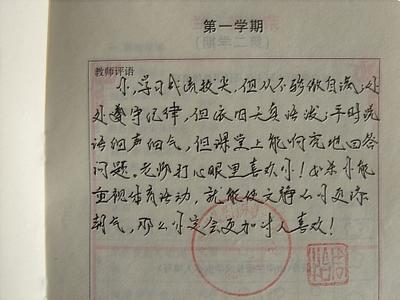 第一学期
教师评语
你,学习成绩拔尖,但从不骄傲自满;处
处遵守纪律,但依旧天真活泼;平时说
话细声细气,但课堂上能响亮地回答
问题。老师打心眼里喜欢你!如果你能
重视体育活动,就能使文静的你更添
朝气,那么你定会更加讨人喜欢!